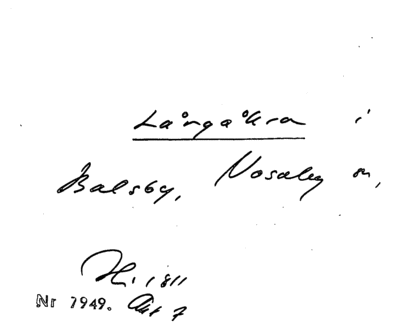 Långåkra i
Balsby, Nosaby sn,
Hi. 1811
Nr 7949. Akt 7